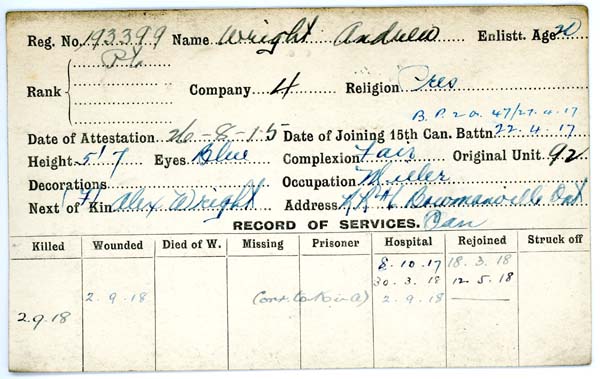 Reg. No. 193399 Name Wright Andrew Enlistt. Age 20
Rank Pte Company 4 Religion Pres
B.P. 2 O. 47/27.4.17
Date of Attestation 26-8-15 Date of Joining 15th Can. Battn 22.4.17
Height 5'7 Eyes Blue Complexion Fair Original Unit 92
Decorations Occupation Miller
Next of Kin (F) Alex Wright Address Bowmanville Ont
RECORD OF SERVICES. Can
Killed Wounded Died of W. Missing Prisoner Hospital Rejoined Struck off
8.10.17 18.3.18
30.3.18 12.5.18
2.9.18 2.9.18
2.9.18